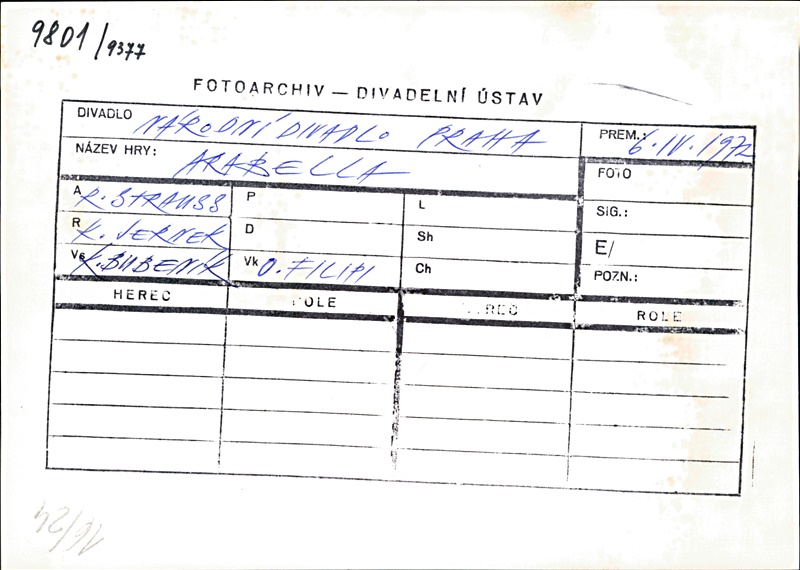 9801/9377
FOTOARCHIV — DIVADELNÍ ÚSTAV
DIVADLO NÁRODNÍ DIVADLO PRAHA PREM.: 6.IV.1972
NÁZEV HRY: ARABELLA FOTO
A R. STRAUSS P L SIG.:
R K. JERNEK D Sh E/
Vs K. BUBENÍK Vk O. FILIPI Ch POZN.:
HEREC ROLE HEREC ROLE
16/24